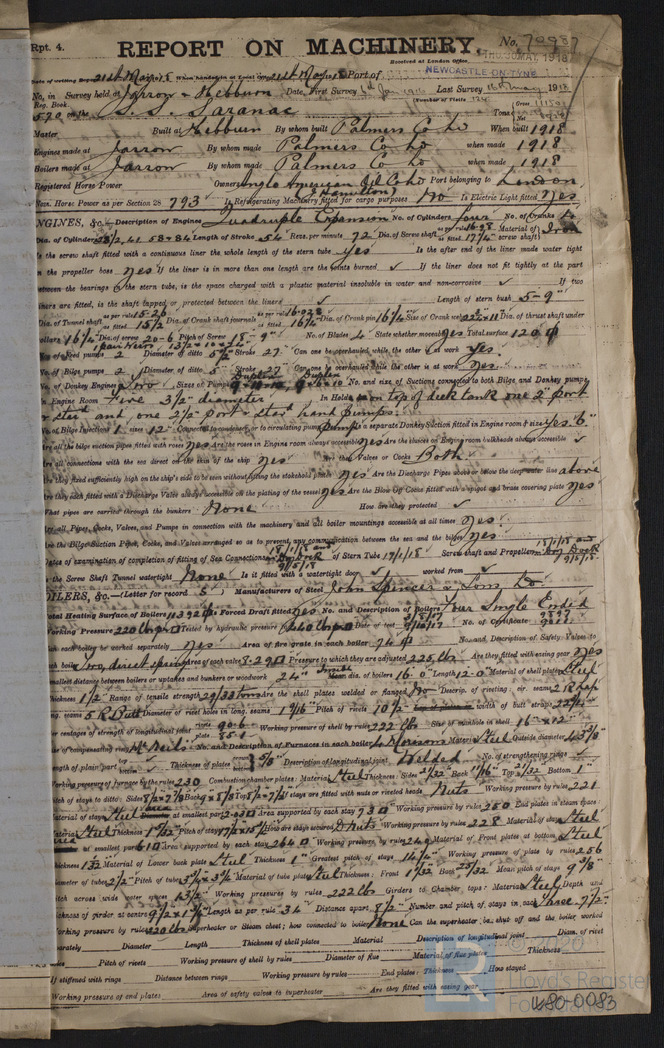 Rpt. 4.
REPORT ON MACHINERY.
No. 70987
Received at London Office THU. 30 MAY. 1918
Date of writing Report 21st May 1918 When handed in at Local Office 21st May 18 Port of NEWCASTLE-ON-TYNE
No. in Survey held at Jarrow & Hebburn Date, First Survey Jan 1916 Last Survey 16th May 1918
Reg. Book.
590 on the S.S. Saranac Tons Gross Net
Master Built at Hebburn By whom built Palmers Co Ld When built 1918
Engines made at Jarrow By whom made Palmers Co Ld when made 1918
Boilers made at Jarrow By whom made Palmers Co Ld when made 1918
Registered Horse Power Owners Anglo American Oil Co Ld Port belonging to London
Nom. Horse Power as per Section 28 793 Is Refrigerating Machinery fitted for cargo purposes No Is Electric Light fitted Yes
ENGINES, &c.—Description of Engines Quadruple Expansion No. of Cylinders four No. of Cranks 4
Dia. of Cylinders 28½, 41, 58 & 84 Length of Stroke 54 Revs. per minute 72 Dia. of Screw shaft as per rule 16.98 as fitted 17¼ Material of screw shaft Iron
Is the screw shaft fitted with a continuous liner the whole length of the stern tube Yes Is the after end of the liner made water tight
in the propeller boss Yes If the liner is in more than one length are the joints burned ✓ If the liner does not fit tightly at the part
between the bearings in the stern tube, is the space charged with a plastic material insoluble in water and non-corrosive ✓ If two
liners are fitted, is the shaft lapped or protected between the liners ✓ Length of stern bush 5-9"
Dia. of Tunnel shaft as per rule 15.26 as fitted 15½ Dia. of Crank shaft journals as per rule as fitted 16¼ Dia. of Crank pin 16¼ Size of Crank webs Dia. of thrust shaft under
collars 16¼ Dia. of screw 20-6 Pitch of Screw 18-9" No. of Blades 4 State whether moveable Yes Total surface 120
No. of Feed pumps 2 Diameter of ditto 5½ Stroke 27 Can one be overhauled while the other is at work Yes
No. of Bilge pumps 2 Diameter of ditto 5 Stroke 27 Can one be overhauled while the other is at work Yes
No. of Donkey Engines two Sizes of Pumps No. and size of Suctions connected to both Bilge and Donkey pumps
In Engine Room Five 3½" diameter In Holds, &c. on top of deck tank one 2" port
& star'd and one 2½" port & star'd hand pumps.
No. of Bilge Injections 1 sizes 12" Connected to condenser, or to circulating pump pump Is a separate Donkey Suction fitted in Engine room & size Yes 6"
Are all the bilge suction pipes fitted with roses Yes Are the roses in Engine room always accessible Yes Are the sluices on Engine room bulkheads always accessible ✓
Are all connections with the sea direct on the skin of the ship Yes Are they Valves or Cocks Both
Are they fixed sufficiently high on the ship's side to be seen without lifting the stokehold plates Yes Are the Discharge Pipes above or below the deep water line above
Are they each fitted with a Discharge Valve always accessible on the plating of the vessel Yes Are the Blow Off Cocks fitted with a spigot and brass covering plate Yes
What pipes are carried through the bunkers None How are they protected ✓
Are all Pipes, Cocks, Valves, and Pumps in connection with the machinery and all boiler mountings accessible at all times Yes
Are the Bilge Suction Pipes, Cocks, and Valves arranged so as to prevent any communication between the sea and the bilges Yes
Dates of examination of completion of fitting of Sea Connections 18/1/18 and Dry Dock 9/5/18 of Stern Tube 17/1/18 Screw shaft and Propeller 18/1/18 and Dry Dock 9/5/18
Is the Screw Shaft Tunnel watertight None Is it fitted with a watertight door ✓ worked from ✓
BOILERS, &c.—(Letter for record S) Manufacturers of Steel John Spencer & Sons Ld
Total Heating Surface of Boilers Is Forced Draft fitted Yes No. and Description of Boilers Four Single Ended
Working Pressure 220 lbs Tested by hydraulic pressure to 440 lbs Date of test No. of Certificate
Can each boiler be worked separately Yes Area of fire grate in each boiler 74 No. and Description of Safety Valves to
each boiler Two, direct spring Area of each valve 8.29 Pressure to which they are adjusted 225 lbs Are they fitted with easing gear Yes
Smallest distance between boilers or uptakes and bunkers or woodwork 24" Mean dia. of boilers 16-0" Length 12-0 Material of shell plates Steel
Thickness 1½ Range of tensile strength 29/33 tons Are the shell plates welded or flanged No Descrip. of riveting: cir. seams 2 R Lap
long. seams 5 R Butt Diameter of rivet holes in long. seams 1 9/16" Pitch of rivets 10½ width of butt straps 22¾"
Per centages of strength of longitudinal joint rivets 90.6 plate 85.1 Working pressure of shell by rules 222 lbs Size of manhole in shell 16" x 12"
Size of compensating ring McNeils No. and Description of Furnaces in each boiler 4 Morisons Material Steel Outside diameter 43⅝"
Length of plain part top ✓ bottom ✓ Thickness of plates Description of longitudinal joint Welded No. of strengthening rings ✓
Working pressure of furnace by the rules 230 Combustion chamber plates: Material Steel Thickness: Sides 21/32 Back 11/16" Top 21/32 Bottom 1"
Pitch of stays to ditto: Sides Back Top If stays are fitted with nuts or riveted heads Nuts Working pressure by rules 221
Material of stays Steel at smallest part Area supported by each stay 73 Working pressure by rules 250 End plates in steam space:
Material Steel Thickness Pitch of stays How are stays secured D Nuts Working pressure by rules 228 Material of stays Steel
at smallest part Area supported by each stay 264 Working pressure by rules 249 Material of Front plates at bottom Steel
Thickness Material of Lower back plate Steel Thickness 1" Greatest pitch of stays 14¼" Working pressure of plate by rules 256
Diameter of tubes 2½" Pitch of tubes 3¾ x 3¾ Material of tube plates Steel Thickness: Front Back 25/32 Mean pitch of stays 9⅜"
Pitch across wide water spaces 13½" Working pressures by rules 222 lbs Girders to Chamber tops: Material Steel Depth and
thickness of girder at centre Length as per rule 34 Distance apart 8½" Number and pitch of stays in each Three 7½"
Working pressure by rules 220 lbs Superheater or Steam chest; how connected to boiler None Can the superheater be shut off and the boiler worked
separately Diameter Length Thickness of shell plates Material Description of longitudinal joint Diam. of rivet
holes Pitch of rivets Working pressure of shell by rules Diameter of flue Material of flue plates Thickness
If stiffened with rings Distance between rings Working pressure by rules End plates: Thickness How stayed
Working pressure of end plates: Area of safety valves to superheater Are they fitted with easing gear
© 2020
Lloyd's Register
Foundation
W80-0083